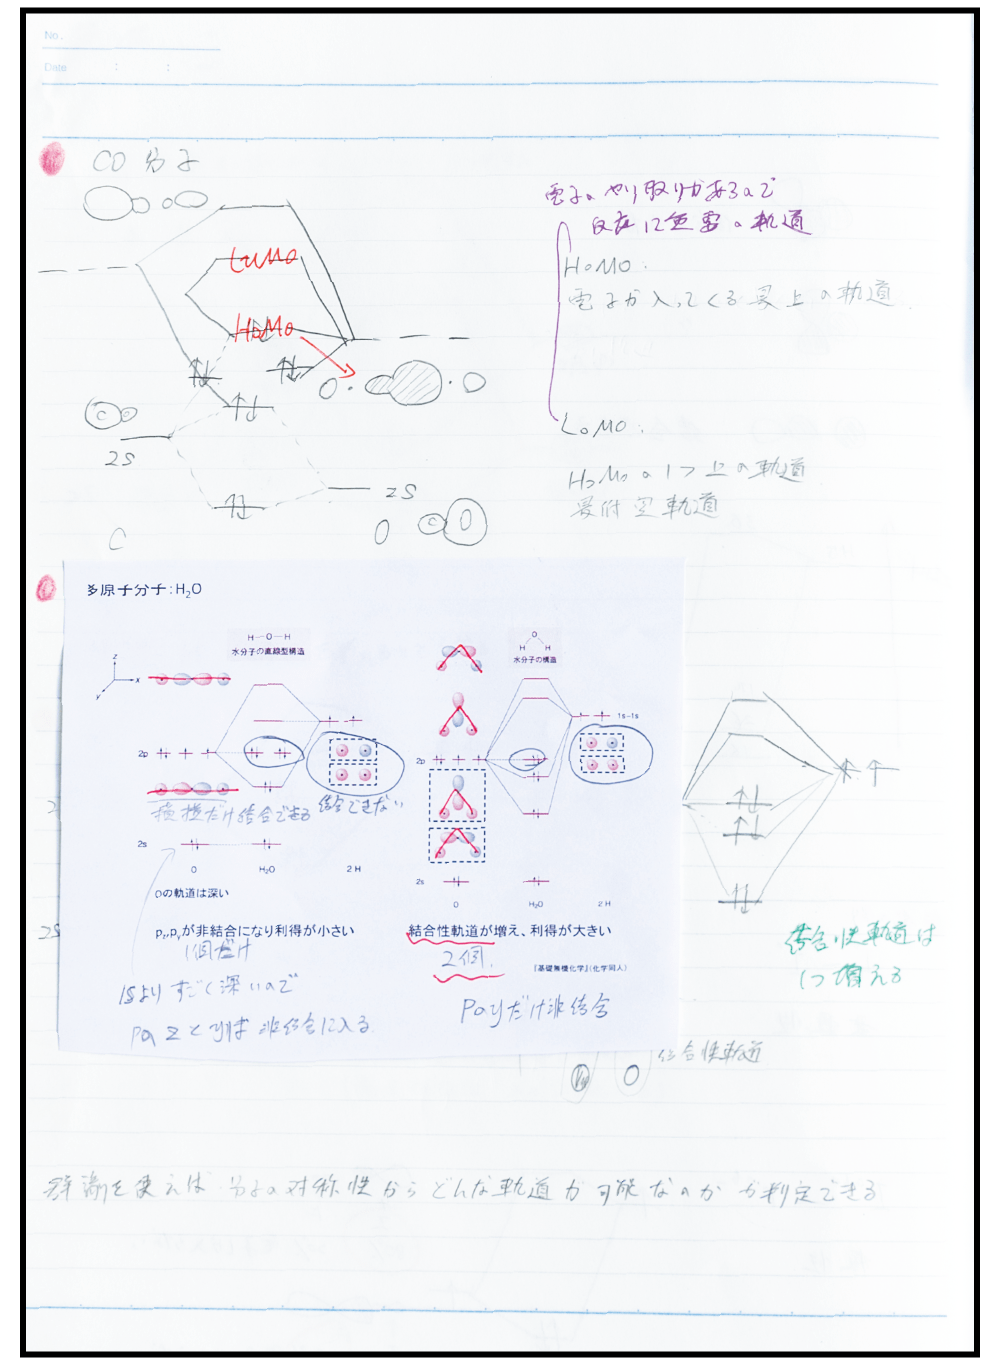 No.
Date : :
CO 分子
電子のやり取りがあるので
反応に重要の軌道
LUMO
HOMO:
電子が入ってくる最上の軌道
HOMO
C
2S
LoMO:
HoMoの1つ上の軌道
最低空軌道
2S
C
O
C
O
多原子分子:H₂O
H-O-H
水分子の直線型構造
O
H H
水分子の構造
z
x
y
1s-1s
2p
2p
横横だけ結合できる 結合できない
2s
O H₂O 2H
2s
O H₂O 2H
Oの軌道は深い
pz,pyが非結合になり利得が小さい
結合性軌道が増え、利得が大きい
1個だけ
2個.
『基礎無機化学』(化学同人)
1Sよりすごく深いので
Pのzとyは非結合に入る
Pのyだけ非結合
2S
結合性軌道は
1つ増える
結合性軌道
群論を使えば 分子の対称性からどんな軌道が可能なのかが判定できる